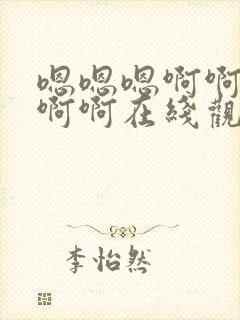 嗯嗯嗯啊啊
啊啊在线观
李怡然